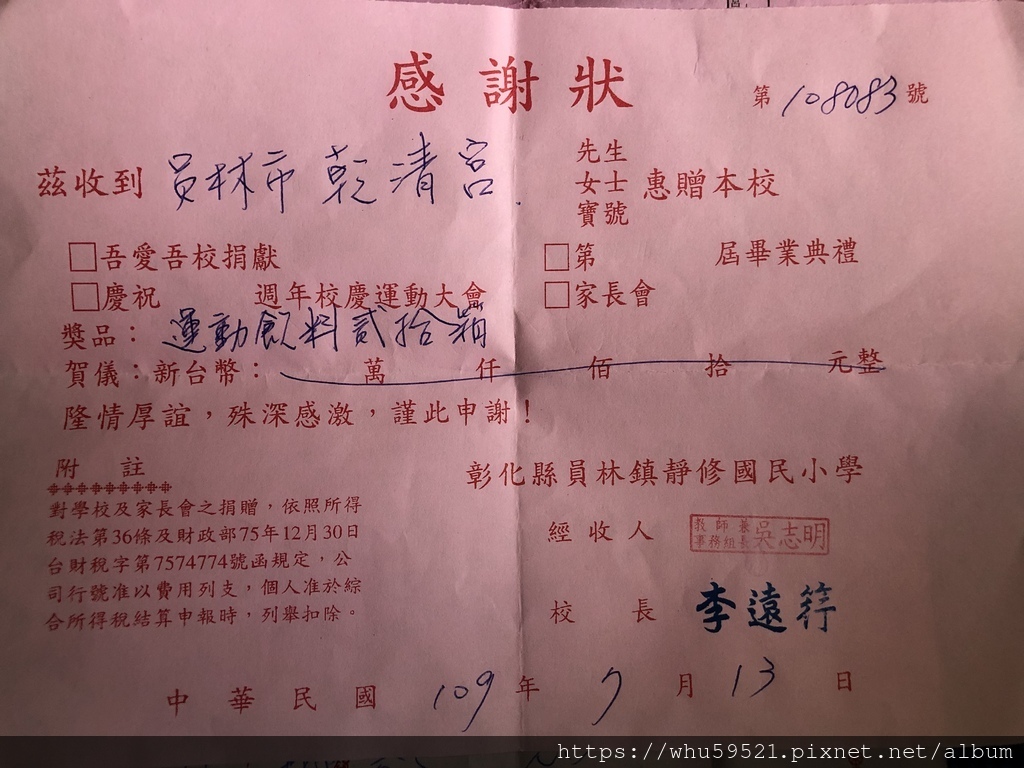 感謝狀
第108083號
茲收到 員林市 乾清宮 先生 女士 寶號 惠贈本校
□吾愛吾校捐獻 □第 屆畢業典禮
□慶祝 週年校慶運動大會 □家長會
獎品：運動飲料貳拾箱
賀儀：新台幣： 萬 仟 佰 拾 元整
隆情厚誼，殊深感激，謹此申謝！
附 註
對學校及家長會之捐贈，依照所得
稅法第36條及財政部75年12月30日
台財稅字第7574774號函規定，公
司行號准以費用列支，個人准於綜
合所得稅結算申報時，列舉扣除。
彰化縣員林鎮靜修國民小學
經收人 教師兼事務組長吳志明
校 長 李遠筓
中華民國 109 年 7 月 13 日
https://whu59521.pixnet.net/album